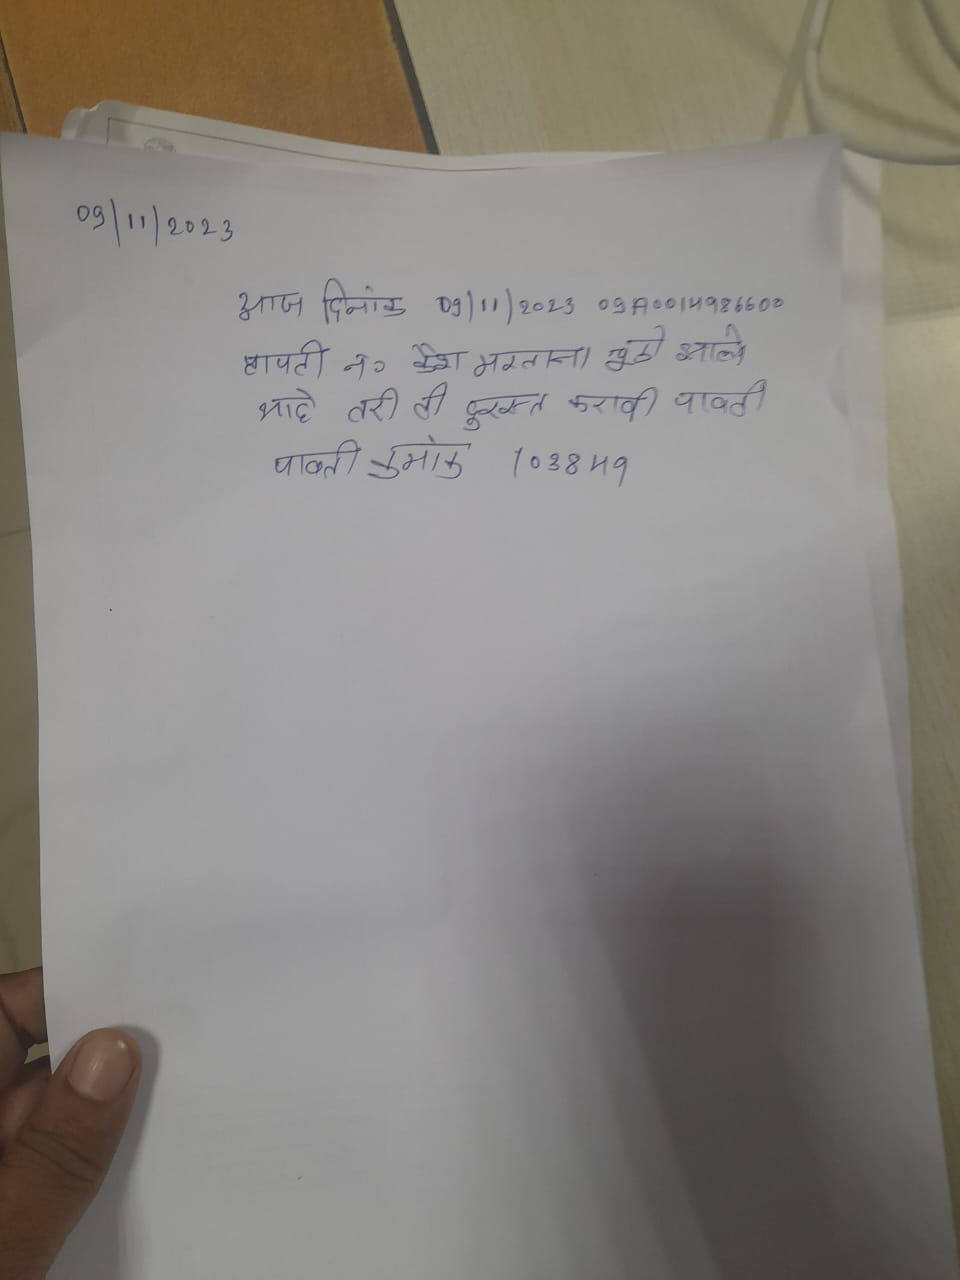 09/11/2023
आज दिनांक 09/11/2023 09A0014986600
पावती नं० कॅश भरताना चुकी आले
आहे तरी ती दुरुस्त करावी पावती
पावती क्रमांक 103849